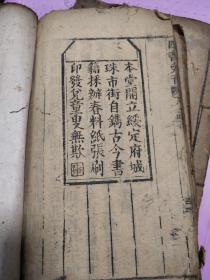 本堂開立綏定府城
珠市街自鐫古今書
籍採辦春料紙張刷
印發兌童叟無欺